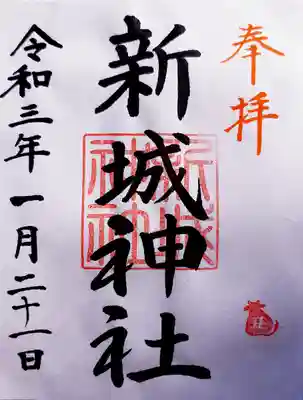 奉拝
新城神社
新城神社
令和三年一月二十一日